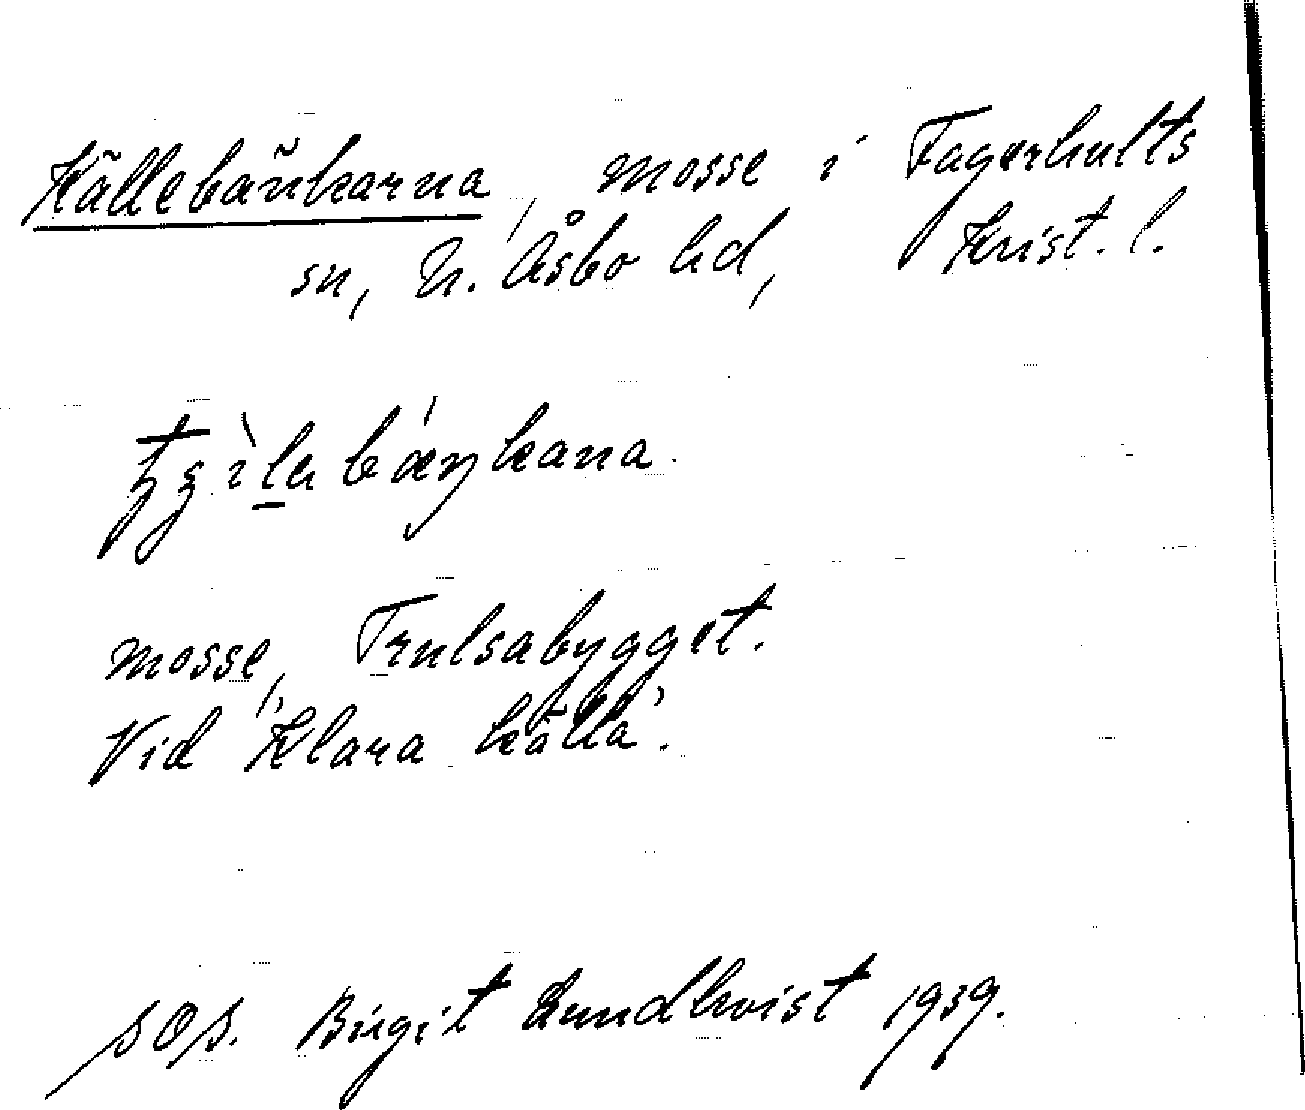 Källebänkarna, mosse i Fagerhults
sn, N. Åsbo hd, Krist. l.
mosse, Trulsabygget.
Vid "Klara källa".
SOS. Birgit Lundkvist 1939.